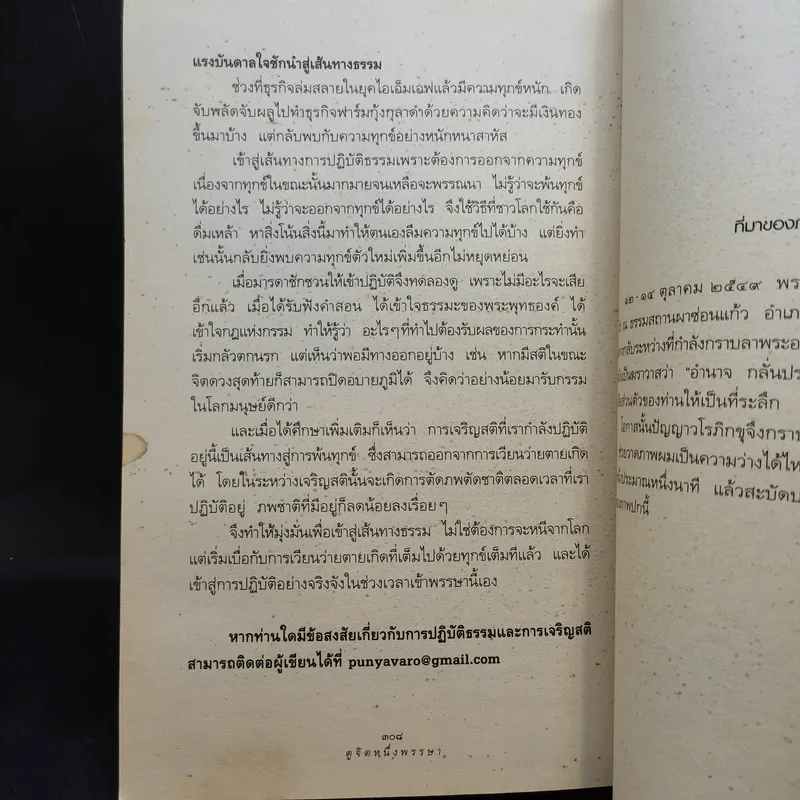 แรงบันดาลใจชักนำสู่เส้นทางธรรม
ช่วงที่ธุรกิจล่มสลายในยุคไอเอ็มเอฟแล้วมีความทุกข์หนัก เกิด
จับพลัดจับผลูไปทำธุรกิจฟาร์มกุ้งกุลาดำด้วยความคิดว่าจะมีเงินทอง
ขึ้นมาบ้าง แต่กลับพบกับความทุกข์อย่างหนักหนาสาหัส
เข้าสู่เส้นทางการปฏิบัติธรรมเพราะต้องการออกจากความทุกข์
เนื่องจากทุกข์ในขณะนั้นมากมายจนเหลือจะพรรณนา ไม่รู้ว่าจะพ้นทุกข์
ได้อย่างไร ไม่รู้ว่าจะออกจากทุกข์ได้อย่างไร จึงใช้วิธีที่ชาวโลกใช้กันคือ
ดื่มเหล้า หาสิ่งโน้นสิ่งนี้มาทำให้ตนเองลืมความทุกข์ไปได้บ้าง แต่ยิ่งทำ
เช่นนั้นกลับยิ่งพบความทุกข์ตัวใหม่เพิ่มขึ้นอีกไม่หยุดหย่อน
เมื่อมารดาชักชวนให้เข้าปฏิบัติจึงทดลองดู เพราะไม่มีอะไรจะเสีย
อีกแล้ว เมื่อได้รับฟังคำสอน ได้เข้าใจธรรมะของพระพุทธองค์ ได้
เข้าใจกฎแห่งกรรม ทำให้รู้ว่า อะไรๆที่ทำไปต้องรับผลของการกระทำนั้น
เริ่มกลัวตกนรก แต่เห็นว่าพอมีทางออกอยู่บ้าง เช่น หากมีสติในขณะ
จิตดวงสุดท้ายก็สามารถปิดอบายภูมิได้ จึงคิดว่าอย่างน้อยมารับกรรม
ในโลกมนุษย์ดีกว่า
และเมื่อได้ศึกษาเพิ่มเติมก็เห็นว่า การเจริญสติที่เรากำลังปฏิบัติ
อยู่นี้เป็นเส้นทางสู่การพ้นทุกข์ ซึ่งสามารถออกจากการเวียนว่ายตายเกิด
ได้ โดยในระหว่างเจริญสตินั้นจะเกิดการตัดภพตัดชาติตลอดเวลาที่เรา
ปฏิบัติอยู่ ภพชาติที่มีอยู่ก็ลดน้อยลงเรื่อยๆ
จึงทำให้มุ่งมั่นเพื่อเข้าสู่เส้นทางธรรม ไม่ใช่ต้องการจะหนีจากโลก
แต่เริ่มเบื่อกับการเวียนว่ายตายเกิดที่เต็มไปด้วยทุกข์เต็มทีแล้ว และได้
เข้าสู่การปฏิบัติอย่างจริงจังในช่วงเวลาเข้าพรรษานี้เอง
หากท่านใดมีข้อสงสัยเกี่ยวกับการปฏิบัติธรรมและการเจริญสติ
สามารถติดต่อผู้เขียนได้ที่ punyavaro@gmail.com
๓๐๘
ดูจิตหนึ่งพรรษา
ที่มาของภ
๑๒-๑๔ ตุลาคม ๒๕๔๙ พร
ณ ธรรมสถานผาซ่อนแก้ว อำเภ
ระหว่างที่กำลังกราบลาพระอ
เป็นฆราวาสว่า "อำนาจ กลั่นปร
ส่วนตัวของท่านให้เป็นที่ระลึก
โอกาสนั้นปัญญาวโรภิกขุจึงกราบ
วาดภาพผมเป็นความว่างได้ไห
ประมาณหนึ่งนาที แล้วสะบัดป
ภาพปกนี้